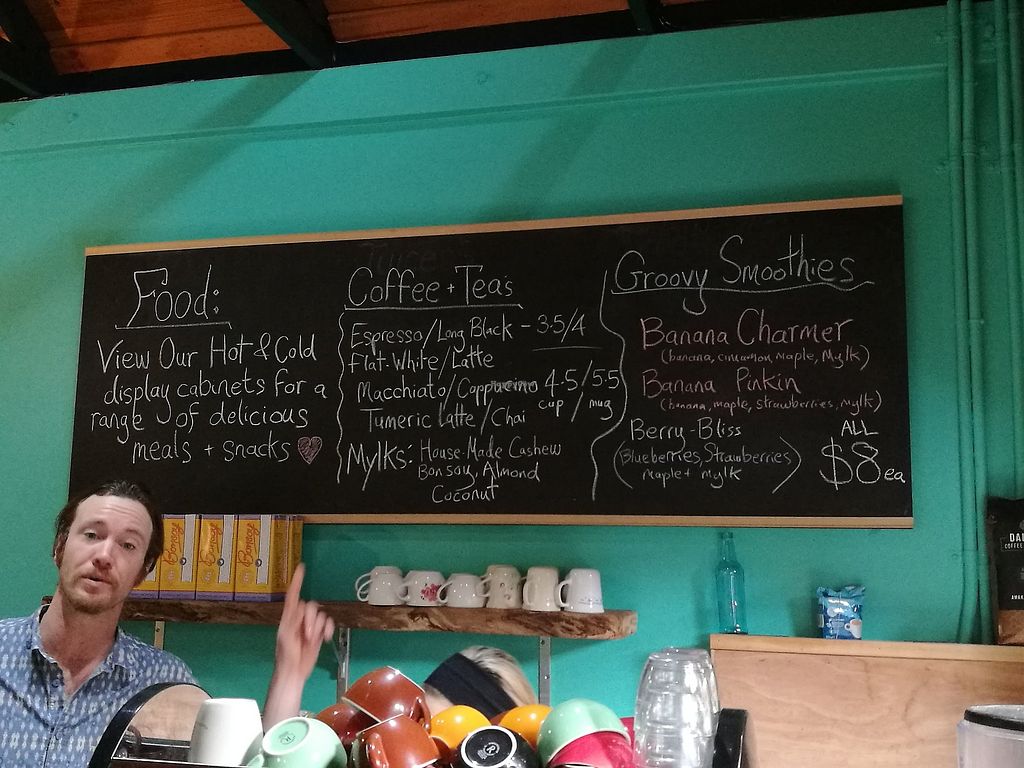 Food:
View Our Hot & Cold
display cabinets for a
range of delicious
meals + snacks
Coffee + Tea's
Espresso/Long Black - 3.5/4
Flat-White/Latte
Macchiato/Cappuccino 4.5/5.5
cup / mug
Tumeric Latte/Chai
Mylks: House-Made Cashew
Bonsoy, Almond
Coconut
Groovy Smoothies
Banana Charmer
(banana, cinnamon, Maple, Mylk)
Banana Pinkin
(banana, maple, strawberries, Mylk)
Berry-Bliss
(Blueberries, Strawberries
Maple + Mylk)
ALL
$8 ea
Bonsoy
Bonsoy
Bonsoy
COFFEE